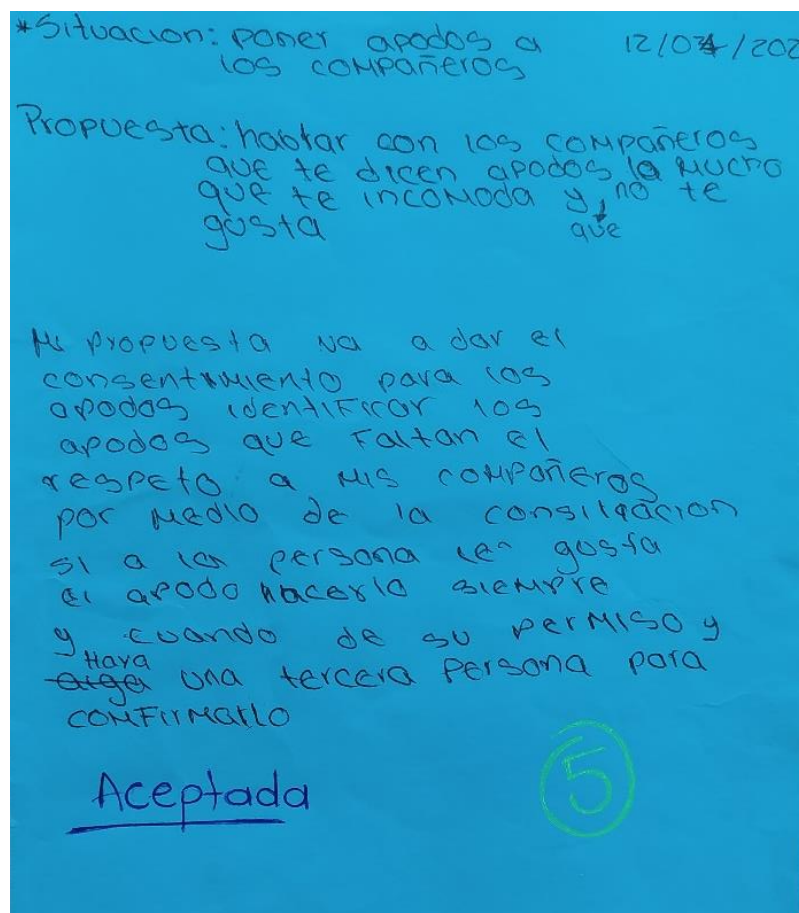 *Situacion: poner apodos a 12/04/202
los compañeros
Propuesta: hablar con los compañeros
que te dicen apodos lo mucho
que te incomoda y que no te
gusta
Mi propuesta va a dar el
consentimiento para los
apodos identificar los
apodos que faltan el
respeto a mis compañeros
por medio de la consiliacion
si a la persona le gusta
el apodo hacerlo siempre
y cuando de su permiso y
Haya una tercera persona para
confirmarlo
Aceptada
5